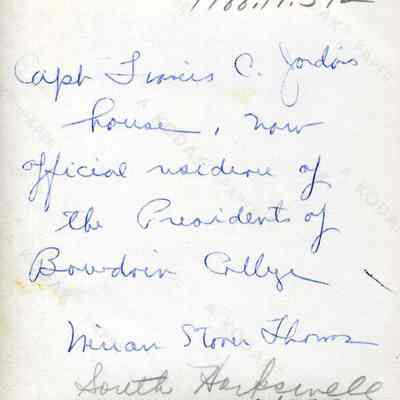 Capt Francis C. Jordan's
house, now
official residence of
the Presidents of
Bowdoin College
Miriam Stover Thomas
South Harpswell